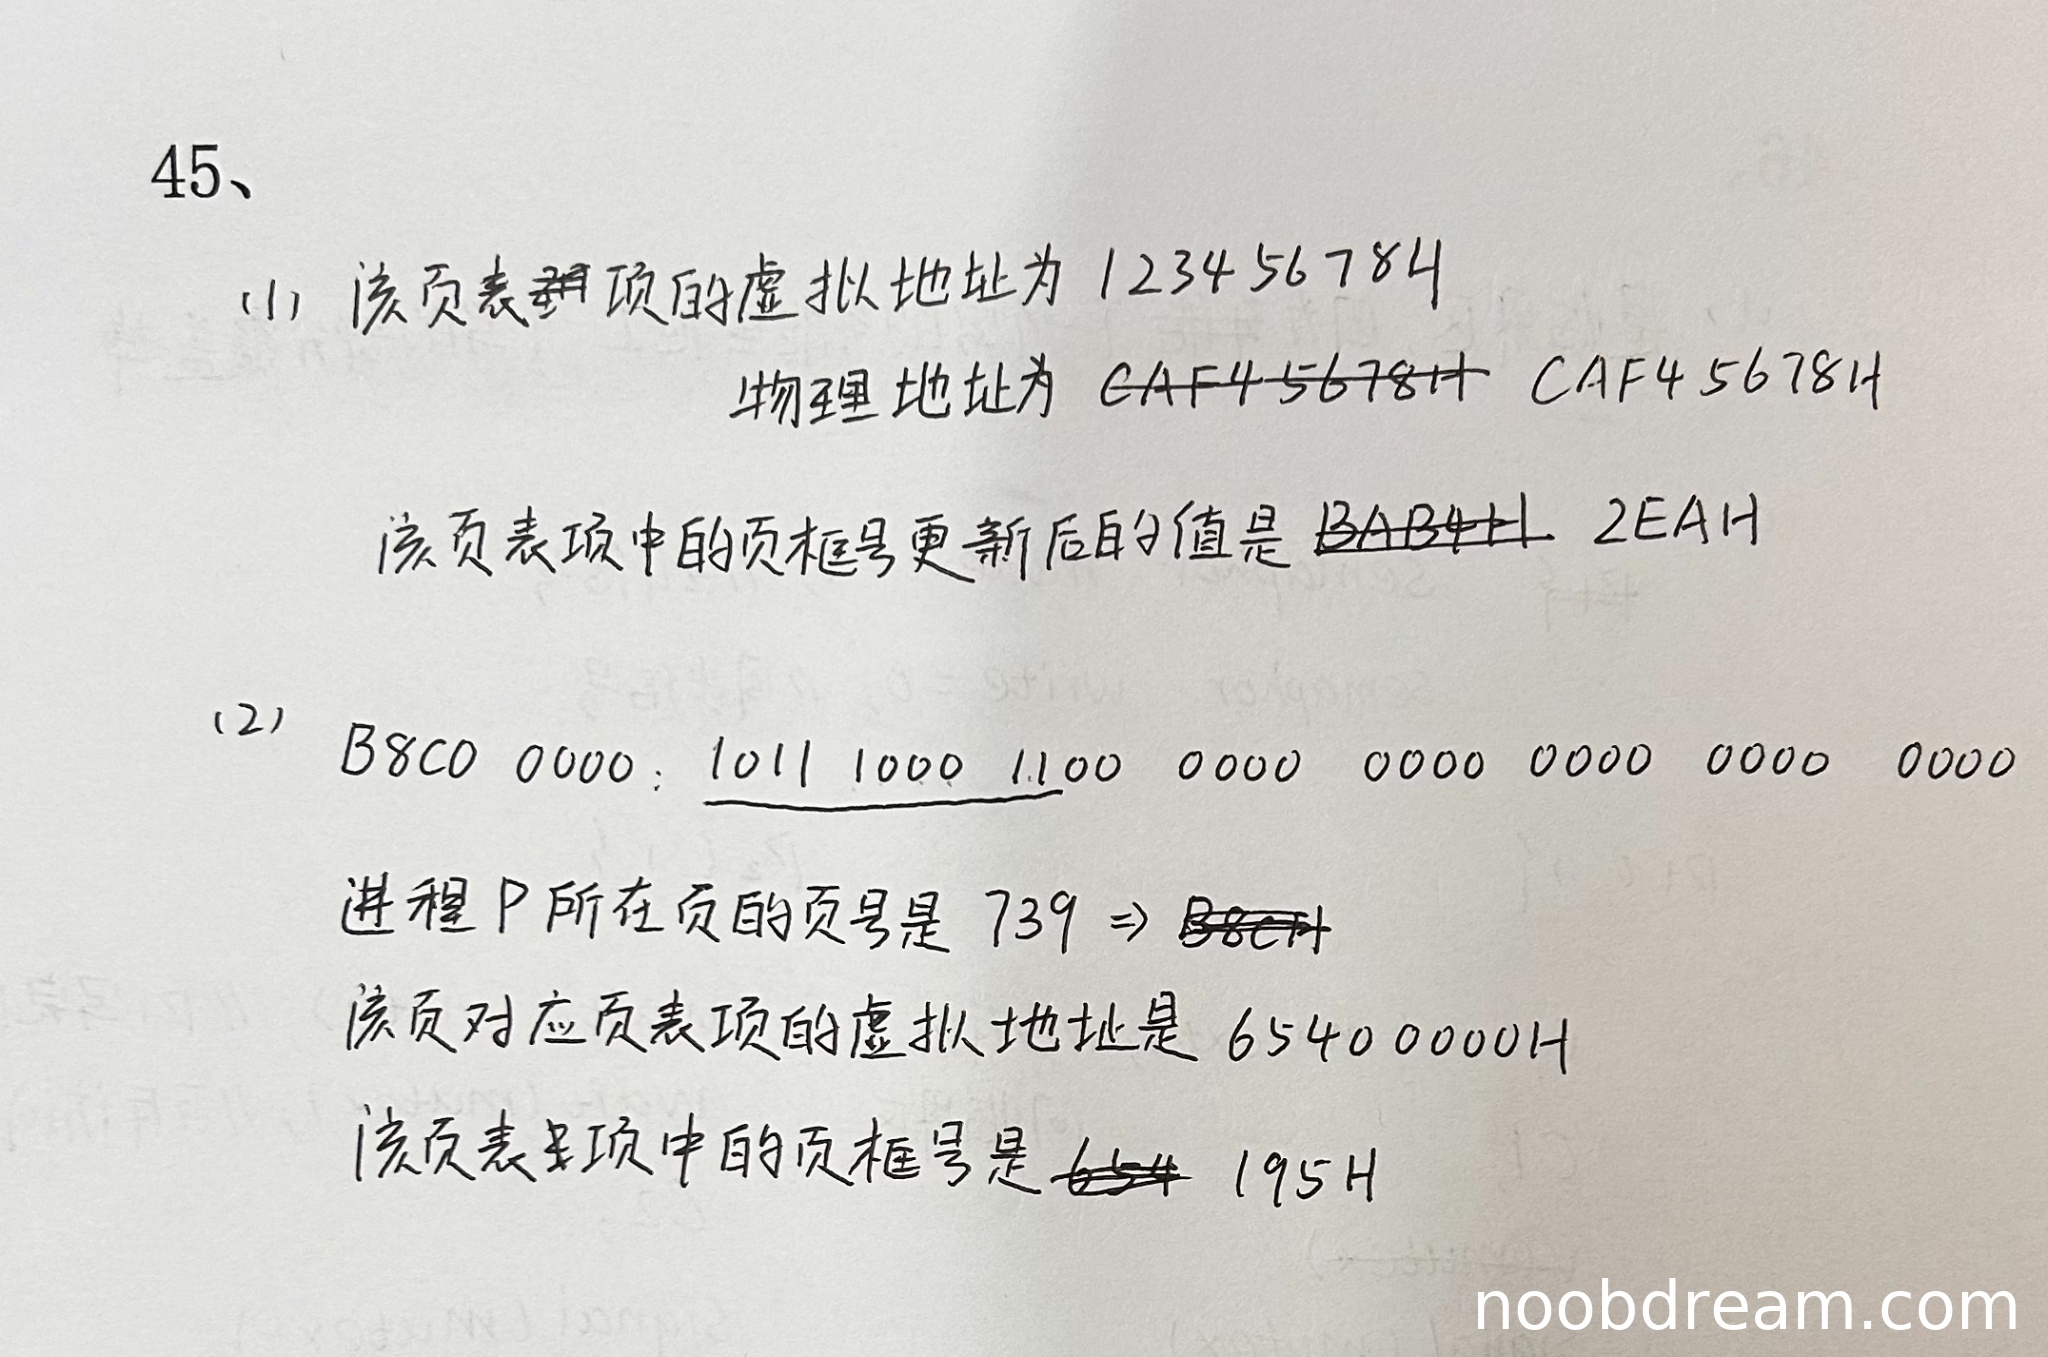 45、
(1) 该页表项的虚拟地址为 12345678H
物理地址为 CAF45678H CAF45678H
该页表项中的页框号更新后的值是 BAB4H 2EAH
(2) B8C0 0000: 1011 1000 1100 0000 0000 0000 0000 0000
进程P所在页的页号是 739 => B8CH
该页对应页表项的虚拟地址是 65400000H
该页表项中的页框号是 654 195H
noobdream.com